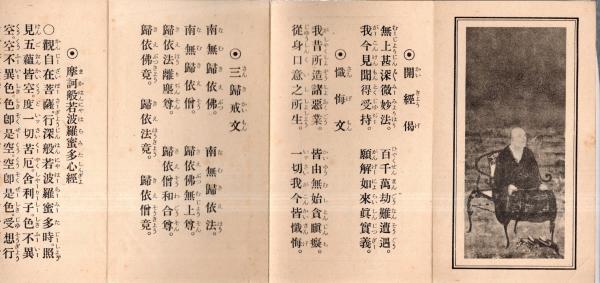 ◉開經偈
無上甚深微妙法。 百千萬劫難遭遇。
我今見聞得受持。 願解如來眞實義。
◉懺悔文
我昔所造諸惡業。 皆由無始貪瞋癡。
從身口意之所生。 一切我今皆懺悔。
◉三歸戒文
南無歸依佛。 南無歸依法。
南無歸依僧。
歸依佛無上尊。
歸依法離塵尊。 歸依僧和合尊。
歸依佛竟。 歸依法竟。 歸依僧竟。
◉摩訶般若波羅蜜多心經
〇觀自在菩薩行深般若波羅蜜多時。照
見五蘊皆空度一切苦厄舍利子色不異
空。空不異色色卽是空。空卽是色受想行